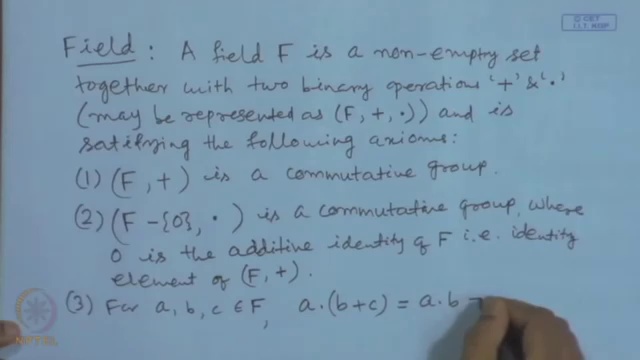 © CET
I.I.T. KGP
Field : A field F is a non-empty set
together with two binary operations '+' & '·'
(may be represented as (F, +, ·)) and is
satisfying the following axioms:
(1) (F, +) is a commutative group.
(2) (F - {0}, ·) is a commutative group, where
0 is the additive identity of F i.e. identity
element of (F, +).
(3) For a, b, c ∈ F, a·(b+c) = a·b
NPTEL